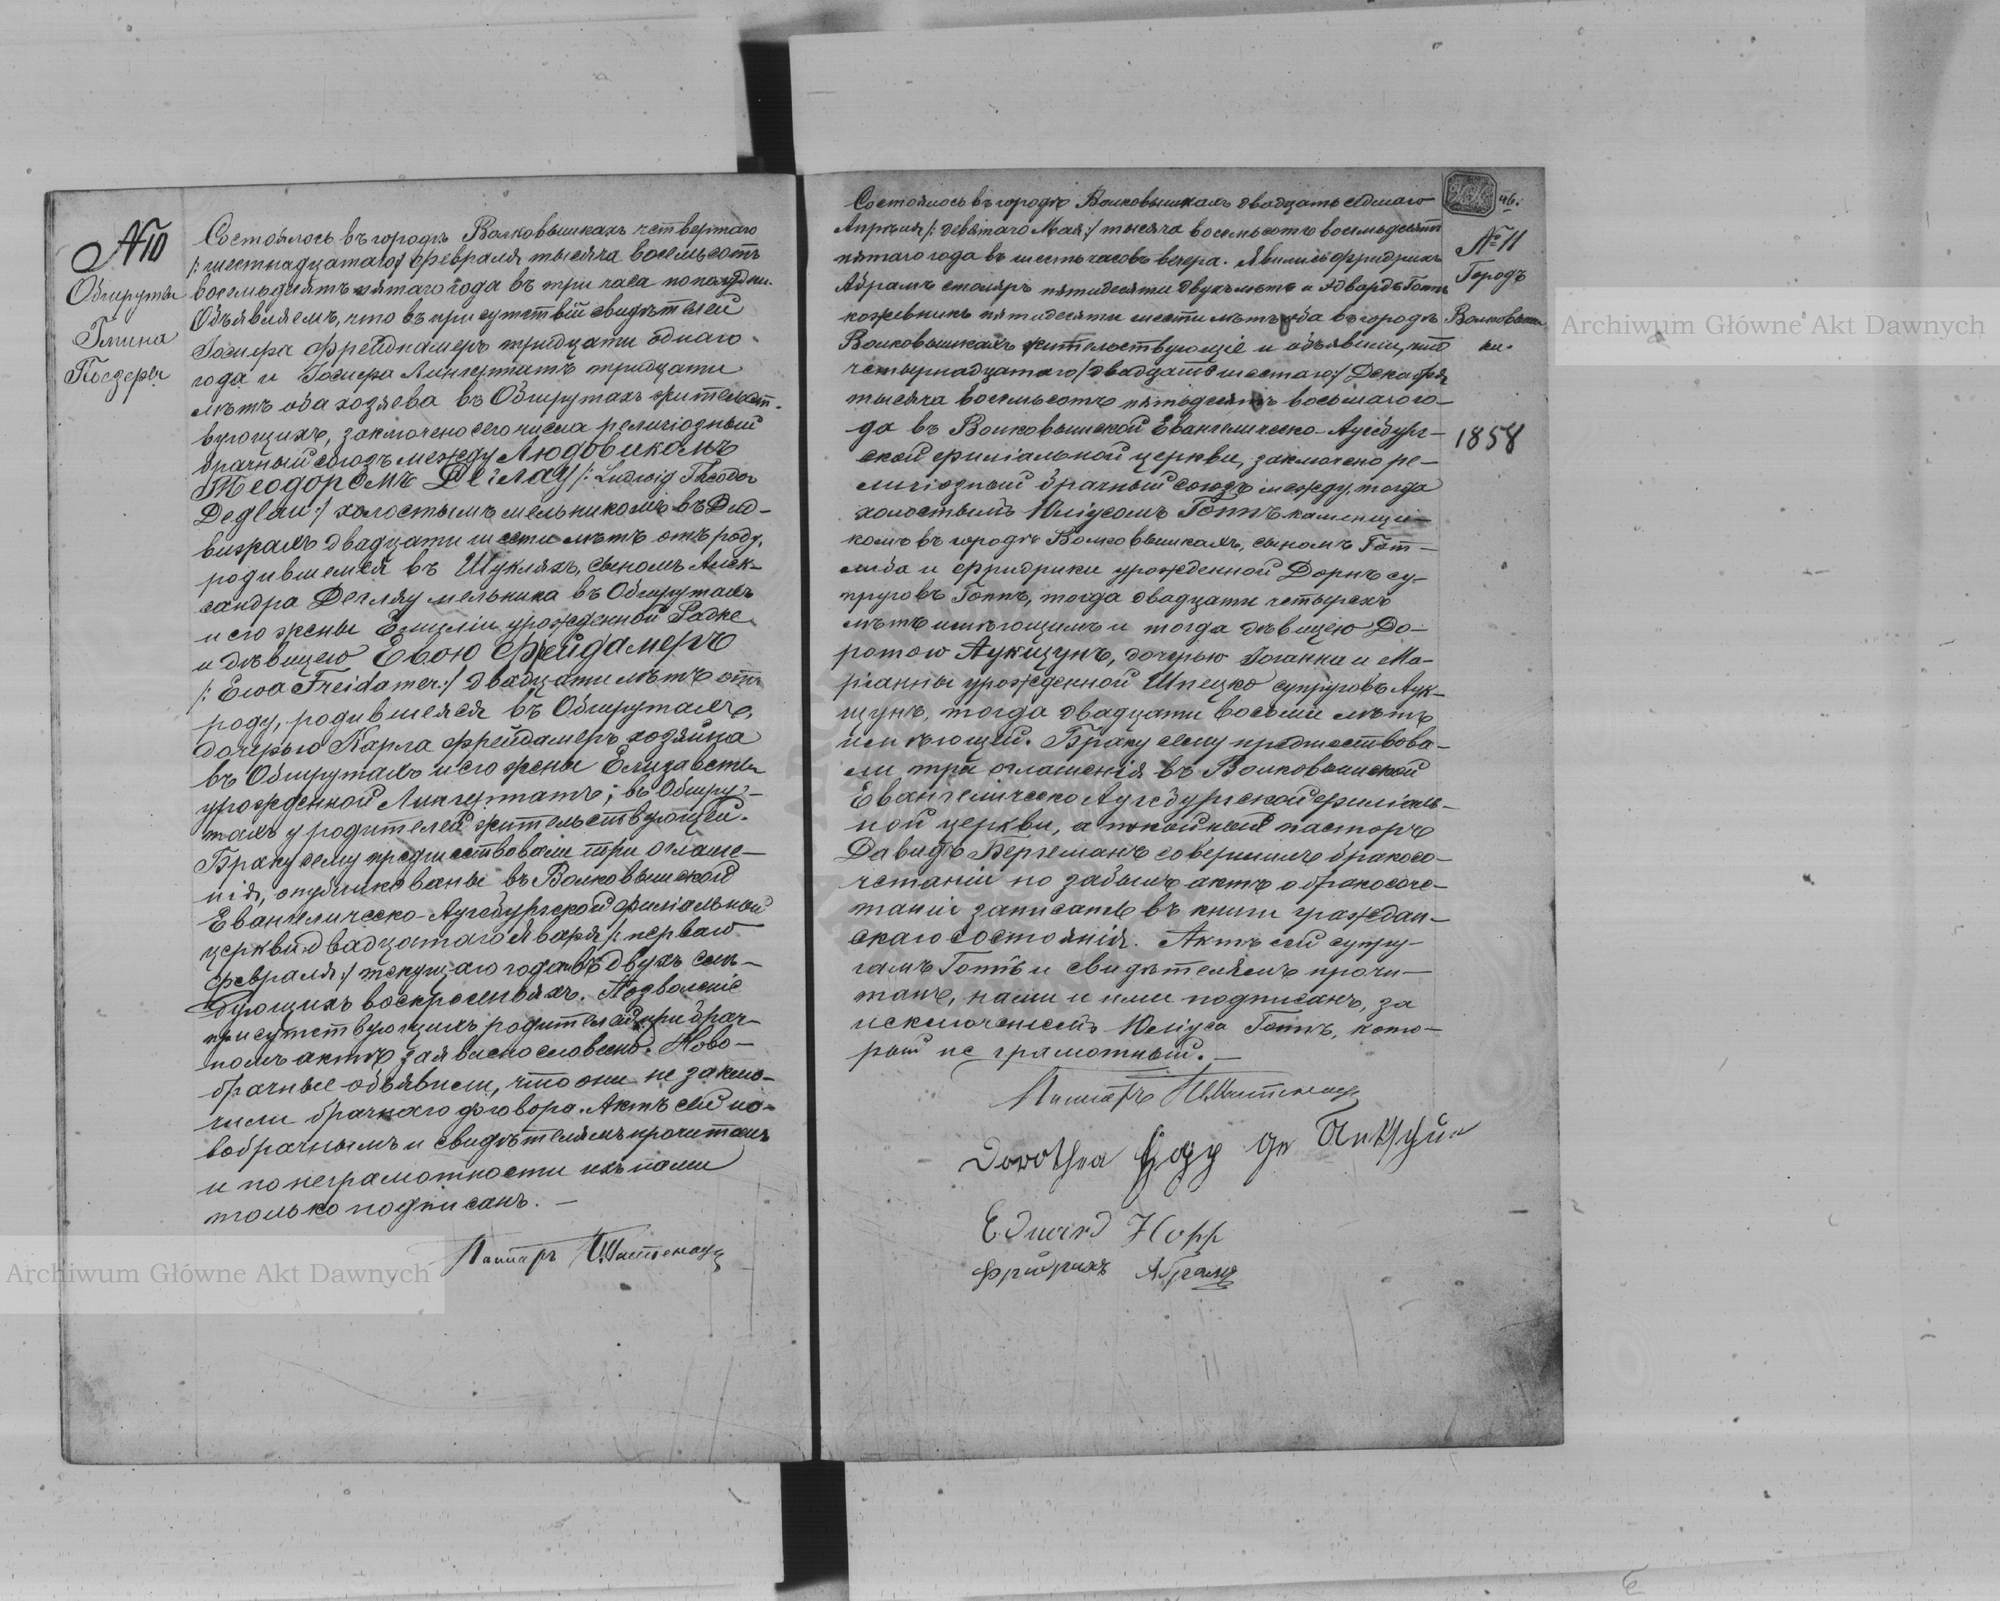 № 10
Обшруты
Гмина
Поезеры
Состоялось въ городѣ Волковышкахъ четвертаго
/: шестнадцатаго :/ Февраля тысяча восемьсотъ
восемьдесятъ пятаго года въ три часа пополудни.
Объявляемъ, что въ присутствіи свидѣтелей
Фрейдамеръ тридцати одного
года и Лингертатъ тридцати
лѣтъ оба хозяева въ Обшрутахъ жительст-
вующихъ, заключено сего числа религіозный
брачный союзъ между Людовикомъ
Теодоромъ Деглау /: Ludwig Theodor
Deglau :/ холостымъ мельникомъ въ Дид-
виграхъ двадцати шести лѣтъ отъ роду,
родившемся въ Шукляхъ, сыномъ Алек-
сандра Деглау мельника въ Обшрутахъ
и его жены Емиліи урожденной Радке
и дѣвицею Евою Фрейдамеръ
/: Ewa Freidamer :/ двадцати лѣтъ отъ
роду, родившеяся въ Обшрутахъ,
дочерью Карла Фрейдамеръ хозяина
въ Обшрутахъ и его жены Елизаветы
урожденной Лингертатъ; въ Обшру-
тахъ у родителей жительствующей.
Браку сему предшествовали три оглаше-
нія, опубликованы въ Волковышской
Евангелическо-Аугсбургской филіальной
церкви двадцатаго Января /: перваго
Февраля :/ текущаго года и въ двухъ слѣ-
дующихъ воскресеньяхъ. Позволеніе
присутствующихъ родителей при брач-
номъ актѣ заявлено словесно. Ново-
брачные объявили, что они не заклю-
чили брачнаго договора. Актъ сей но-
вобрачнымъ и свидѣтелямъ прочитанъ
и по неграмотности ихъ нами
только подписанъ. —
Пасторъ
46.
№ 11
Городъ
Волковыш-
ки.
1858
Состоялось въ городѣ Волковышкахъ двадцать седмаго
Апрѣля /: девятаго Мая :/ тысяча восемьсотъ восемьдесятъ
пятаго года въ шесть часовъ вечера. Явились Фридрихъ
Абрамъ столяръ пятидесяти двухъ лѣтъ и Эдвардъ Гоппъ
кожевникъ пятидесяти шести лѣтъ оба въ городѣ
Волковышкахъ жительствующіе и объявили, что
четырнадцатаго /: двадцать шестаго :/ Декабря
тысяча восемьсотъ пятьдесятъ восьмаго го-
да въ Волковышской Евангелическо-Аугсбург-
ской филіальной церкви, заключено ре-
лигіозный брачный союзъ между, тогда
холостымъ Юліусомъ Гоппъ каменщи-
комъ въ городѣ Волковышкахъ, сыномъ Гот-
либа и Фридрики урожденной Дорнъ су-
пруговъ Гоппъ, тогда двадцати четырехъ
лѣтъ имѣющимъ и тогда дѣвицею До-
ротою Аукщунъ, дочерью Іоганна и Ма-
ріанны урожденной Шпецко супруговъ Аук-
щунъ, тогда двадцати восьми лѣтъ
имѣющей. Браку сему предшествова-
ли три оглашенія въ Волковышской
Евангелическо Аугсбургской филіаль-
ной церкви, а покойный пасторъ
Давидъ Бергеманъ совершилъ бракосо-
четаніи но забылъ актъ о бракосоче-
таніи записать въ книги граждан-
скаго состоянія. Актъ сей супру-
гамъ Гоппъ и свидѣтелямъ прочи-
танъ, нами и ими подписанъ, за
исключеніемъ Юліуса Гоппъ, кото-
рый не грамотный. —
Пасторъ
Dorothea Hopp
Eduard Hopp
Фридрихъ Абрамъ
Archiwum Główne Akt Dawnych
Archiwum Główne Akt Dawnych